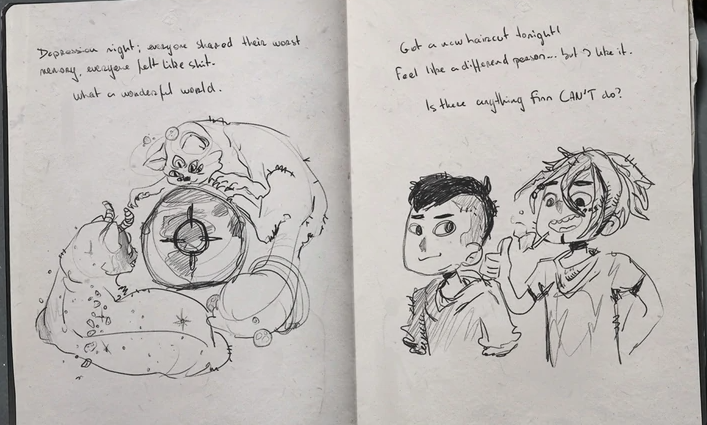 Depression night; everyone shared their worst
memory, everyone felt like shit.
what a wonderful world.
Got a new haircut tonight!
Feel like a different person... but I like it.
Is there anything Finn CAN'T do?